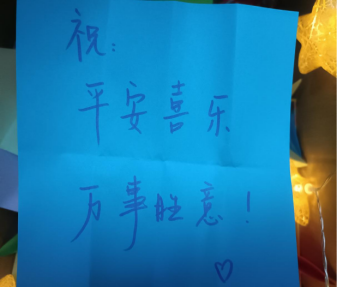 祝：
平安喜乐
万事胜意！